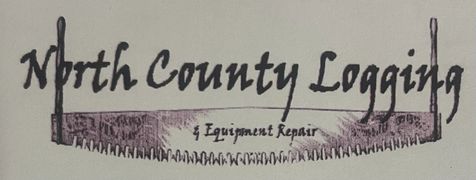 North County Logging
& Equipment Repair